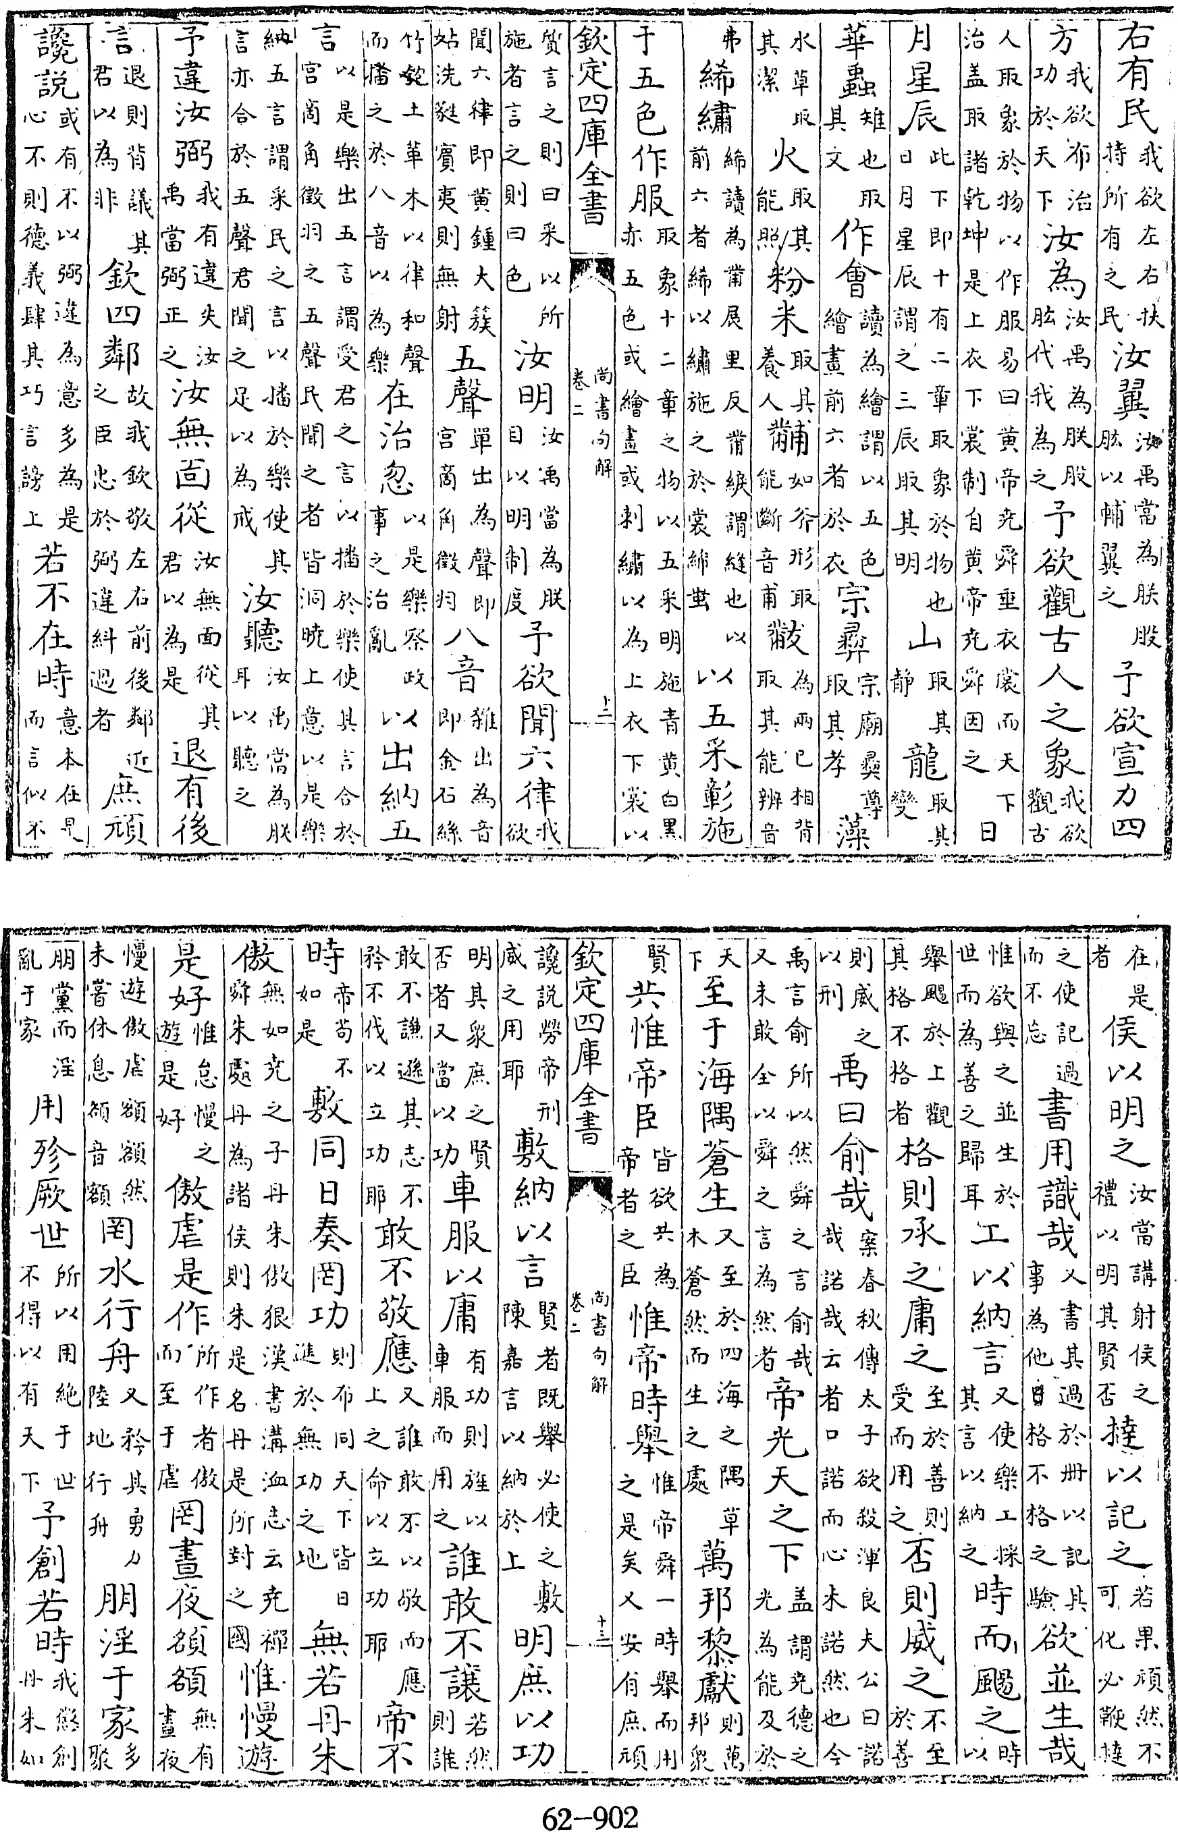 右有民我欲左右扶持所有之民汝翼汝禹當為朕股肱以輔翼之予欲宣力四
方我欲布治功於天下汝為汝禹為朕股肱代我為之予欲觀古人之象我欲觀古
人取象於物以作服易曰黄帝堯舜垂衣裳而天下治盖取諸乾坤是上衣下裳制自黄帝堯舜因之日
月星辰此下即十有二章取象於物也日月星辰謂之三辰取其明山取其静龍取其變
華蟲雉也取其文作會讀為繪謂以五色繪畫前六者於衣宗彝宗廟彛尊取其孝藻
水草取其潔火取其能照粉米取其養人黼如斧形取能斷音甫黻為兩已相背取其能辨音
弗絺繡絺讀為黹展里反黹紩謂縫也以前六者絺以繡施之於裳絺蚩以五采彰施
于五色作服取象十二章之物以五采明施青黄白黒亦五色或繪畫或刺繡以為上衣下裳以
欽定四庫全書 尚書句解 卷二 十二
質言之則曰采以所施者言之則曰色汝明汝禹當為朕目以明制度予欲聞六律我欲
聞六律即黄鍾大簇姑洗蕤賓夷則無射五聲單出為聲即宫商角徵羽八音雜出為音即金石絲
竹匏土革木以律和聲而播之於八音以為樂在治忽以是樂察政事之治亂以出納五
言以是樂出五言謂受君之言以播於樂使其言合於宫商角徵羽之五聲民聞之者皆洞暁上意以是樂
納五言謂采民之言以播於樂使其言亦合於五聲君聞之足以為戒汝聽汝禹當為朕耳以聽之
予違汝弼我有違失汝禹當弼正之汝無面從汝無面從其君以為是退有後
言退則背議其君以為非欽四鄰故我欽敬左右前後鄰近之臣忠於弼違糾過者庶頑
讒説或有不以弼違為意多為是心不則德義肆其巧言謗上若不在時意本在是而言似不
在是者侯以明之汝當講射侯之禮以明其賢否撻以記之若果頑然不可化必鞭撻
之使記過而不忘書用識哉又書其過於冊以記其事為他日格不格之驗欲並生哉
惟欲與之並生於世而為善之歸耳工以納言又使樂工採其言以納之時而颺之時以
舉颺於上觀其格不格者格則承之庸之至於善則受而用之否則威之不至於善
則威之以刑禹曰俞哉案春秋傳太子欲殺渾良夫公曰諾哉諾哉云者口諾而心未諾然也今
禹言俞所以然舜之言俞哉又未敢全以舜之言為然者帝光天之下盖謂堯德之光為能及於
天下至于海隅蒼生又至於四海之隅草木蒼然而生之處萬邦黎獻則萬邦衆
賢共惟帝臣皆欲共為帝者之臣惟帝時舉惟帝舜一時舉而用之是矣又安有庶頑
欽定四庫全書 尚書句解 卷二 十三
讒説勞帝刑威之用耶敷納以言賢者既舉必使之敷陳嘉言以納於上明庶以功
明其衆庶之賢否者又當以功車服以庸有功則旌以車服而用之誰敢不讓若然則誰
敢不謙遜其志不矜不伐以立功耶敢不敬應又誰敢不以敬而應上之命以立功耶帝不
時帝苟不如是敷同日奏罔功則布同天下皆日進於無功之地無若丹朱
傲無如堯之子丹朱傲狠漢書溝洫志云堯禪舜朱處丹為諸侯則朱是名丹是所對之國惟慢遊
是好惟怠慢之遊是好傲虐是作所作者傲而至于虐罔晝夜頟頟無有晝夜
慢遊傲虐頟頟然未嘗休息頟音額罔水行舟又矜其勇力陸地行舟朋淫于家多聚
朋黨而淫亂于家用殄厥世所以用絶于世不得以有天下予創若時我懲創丹朱如
62-902